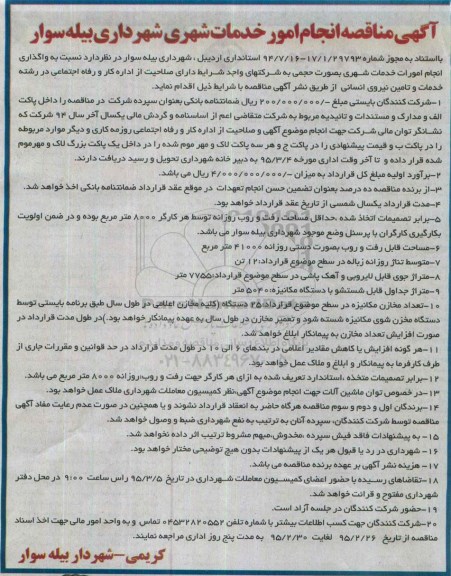 آگهی مناقصه انجام امور خدمات شهری شهرداری بیله سوار
بااستناد به مجوز شماره ۱۷/۱/۲۹۷۹۳-۹۴/۷/۱۶ استانداری اردبیل ، شهرداری بیله سوار در نظردارد نسبت به واگذاری
انجام امورات خدمات شهری بصورت حجمی به شرکتهای واجد شرایط دارای صلاحیت از اداره کار و رفاه اجتماعی در رشته
خدمات و تامین نیروی انسانی از طریق نشر آگهی مناقصه با شرایط ذیل اقدام نماید.
۱-شرکت کنندگان بایستی مبلغ -/۲۰۰/۰۰۰/۰۰۰ ریال ضمانتنامه بانکی بعنوان سپرده شرکت در مناقصه را داخل پاکت
الف و مدارک و مستندات و تائیدیه مربوط به شرکت متقاضی اعم از اساسنامه و گردش مالی یکسال آخر سال ۹۴ شرکت که
نشانگر توان مالی شرکت جهت انجام موضوع آگهی و صلاحیت از اداره کار و رفاه اجتماعی روزمه کاری و دیگر موارد مربوطه
را در پاکت ب و قیمت پیشنهادی را در پاکت ج و هر سه پاکت لاک و مهر موم شده را در داخل یک پاکت بزرگ لاک و مهرموم
شده قرار داده و تا آخر وقت اداری مورخه ۹۵/۳/۴ به دبیر خانه شهرداری تحویل و رسید دریافت دارند.
۲-برآورد اولیه مبلغ کل قرارداد به میزان -/۴/۰۰۰/۰۰۰/۰۰۰ ریال می باشد.
۳-از برنده مناقصه ده درصد بعنوان تضمین حسن انجام تعهدات در موقع عقد قرارداد ضمانتنامه بانکی اخذ خواهد شد.
۴-مدت قرارداد یکسال شمسی از تاریخ عقد قرارداد خواهد بود.
۵-برابر تصمیمات اتخاذ شده ،حداقل مساحت رفت و روب روزانه توسط هر کارگر ۸۰۰۰ متر مربع بوده و در ضمن اولویت
بکارگیری کارگران با پرسنل وضع موجود شهرداری بیله سوار می باشد.
۶-مساحت قابل رفت و روب بصورت دستی روزانه ۴۱۰۰۰ متر مربع
۷-متوسط تناژ روزانه زباله در سطح موضوع قرارداد:۱۲ تن
۸-متراژ جوی قابل لایروبی و آهک پاشی در سطح موضوع قرارداد:۷۷۵۵ متر
۹-متراژ جداول قابل شستشو با دستگاه مکانیزه:۵۰۴۰ متر
۱۰-تعداد مخازن مکانیزه در سطح موضوع قرارداد:۲۵ دستگاه (کلیه مخازن اعلامی در طول سال طبق برنامه بایستی توسط
دستگاه مخزن شوی مکانیزه شسته شود و تعمیر مخازن در طول سال به عهده پیمانکار خواهد بود.)در طول مدت قرارداد در
صورت افزایش تعداد مخازن به پیمانکار ابلاغ خواهد شد.
۱۱-هر گونه افزایش یا کاهش مقادیر اعلامی در بندهای ۶ الی ۱۰ در طول مدت قرارداد در حد قوانین و مقررات جاری از
طرف کارفرما به پیمانکار و ابلاغ و ملاک عمل خواهد بود.
۱۲-برابر تصمیمات متخذه ،استاندارد تعریف شده به ازای هر کارگر جهت رفت و روب،روزانه ۸۰۰۰ متر مربع می باشد.
۱۳-در خصوص توان ماشین آلات جهت انجام موضوع آگهی،نظر کمیسیون معاملات شهرداری ملاک عمل خواهد بود.
۱۴-برندگان اول و دوم و سوم مناقصه هرگاه حاضر به انعقاد قرارداد نشوند و یا همچنین در صورت عدم رعایت مفاد آگهی
مناقصه توسط شرکت کنندگان، سپرده آنان به ترتیب به نفع شهرداری ضبط و وصول خواهد شد.
۱۵- به پیشنهادات فاقد فیش سپرده ،مخدوش،مبهم مشروط ترتیب اثر داده نخواهد شد.
۱۶- شهرداری در رد یا قبول هر یک از پیشنهادات بدون هیچ توضیحی مختار خواهد بود.
۱۷- هزینه نشر آگهی بر عهده برنده مناقصه می باشد.
۱۸-تقاضاهای رسیده با حضور اعضای کمیسیون معاملات شهرداری در تاریخ ۹۵/۳/۵ راس ساعت ۹:۰۰ در محل دفتر
شهرداری مفتوح و قرائت خواهد شد.
۱۹-حضور شرکت کنندگان در جلسه آزاد است.
۲۰-شرکت کنندگان جهت کسب اطلاعات بیشتر با شماره تلفن ۰۴۵۳۲۸۲۰۵۵۲ تماس و به واحد امور مالی جهت اخذ اسناد
مناقصه از تاریخ ۹۵/۲/۲۶ لغایت ۹۵/۲/۳۰ به مدت پنج روز اداری مراجعه نمایند.
کریمی-شهردار بیله سوار